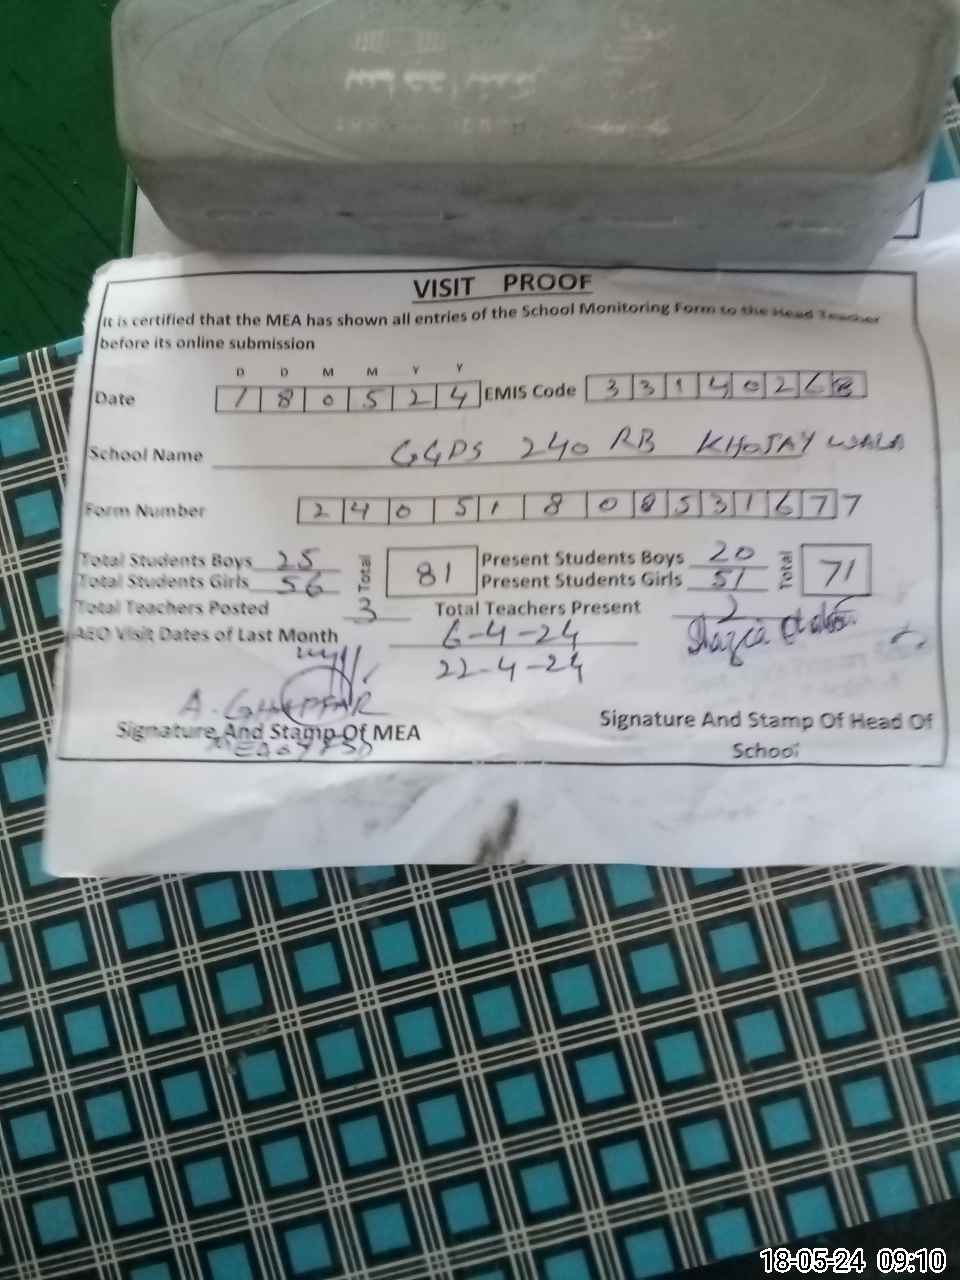 VISIT PROOF
It is certified that the MEA has shown all entries of the School Monitoring Form to the Head Teacher
before its online submission
D D M M Y Y
Date 1 8 0 5 2 4 EMIS Code 3 3 1 4 0 2 6 8
School Name GGPS 240 RB KHOJAY WALA
Form Number 2 4 0 5 1 8 0 8 5 3 1 6 7 7
Total Students Boys 25 Total 81 Present Students Boys 20 Total 71
Total Students Girls 56 Present Students Girls 51
Total Teachers Posted 3 Total Teachers Present 2
AEO Visit Dates of Last Month 6-4-24
22-4-24
Shazia
A. GHAFFAR
Signature And Stamp Of MEA
Signature And Stamp Of Head Of
School
18-05-24 09:10